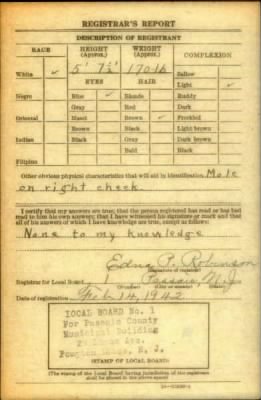 REGISTRAR'S REPORT
DESCRIPTION OF REGISTRANT
RACE HEIGHT (Approx.) WEIGHT (Approx.) COMPLEXION
5' 7½" 170 lb
White ✓ Sallow
EYES HAIR Light ✓
Negro Blue ✓ Blonde Ruddy
Gray Red Dark
Oriental Hazel Brown ✓ Freckled
Brown Black Light brown
Indian Black Gray Dark brown
Bald Black
Filipino
Other obvious physical characteristics that will aid in identification Mole
on right cheek.
I certify that my answers are true; that the person registered has read or has had
read to him his own answers; that I have witnessed his signature or mark and that
all of his answers of which I have knowledge are true, except as follows:
None to my knowledge
Edna P. Robinson
(Signature of registrar)
Registrar for Local Board Passaic N.J.
(Number) (City or county) (State)
Date of registration Feb 14, 1942
LOCAL BOARD No. 1
For Passaic County
Municipal Building
Ave.
Pompton Lakes, N. J.
(STAMP OF LOCAL BOARD)
(The stamp of the Local Board having jurisdiction of the registrant
shall be placed in the above space.)